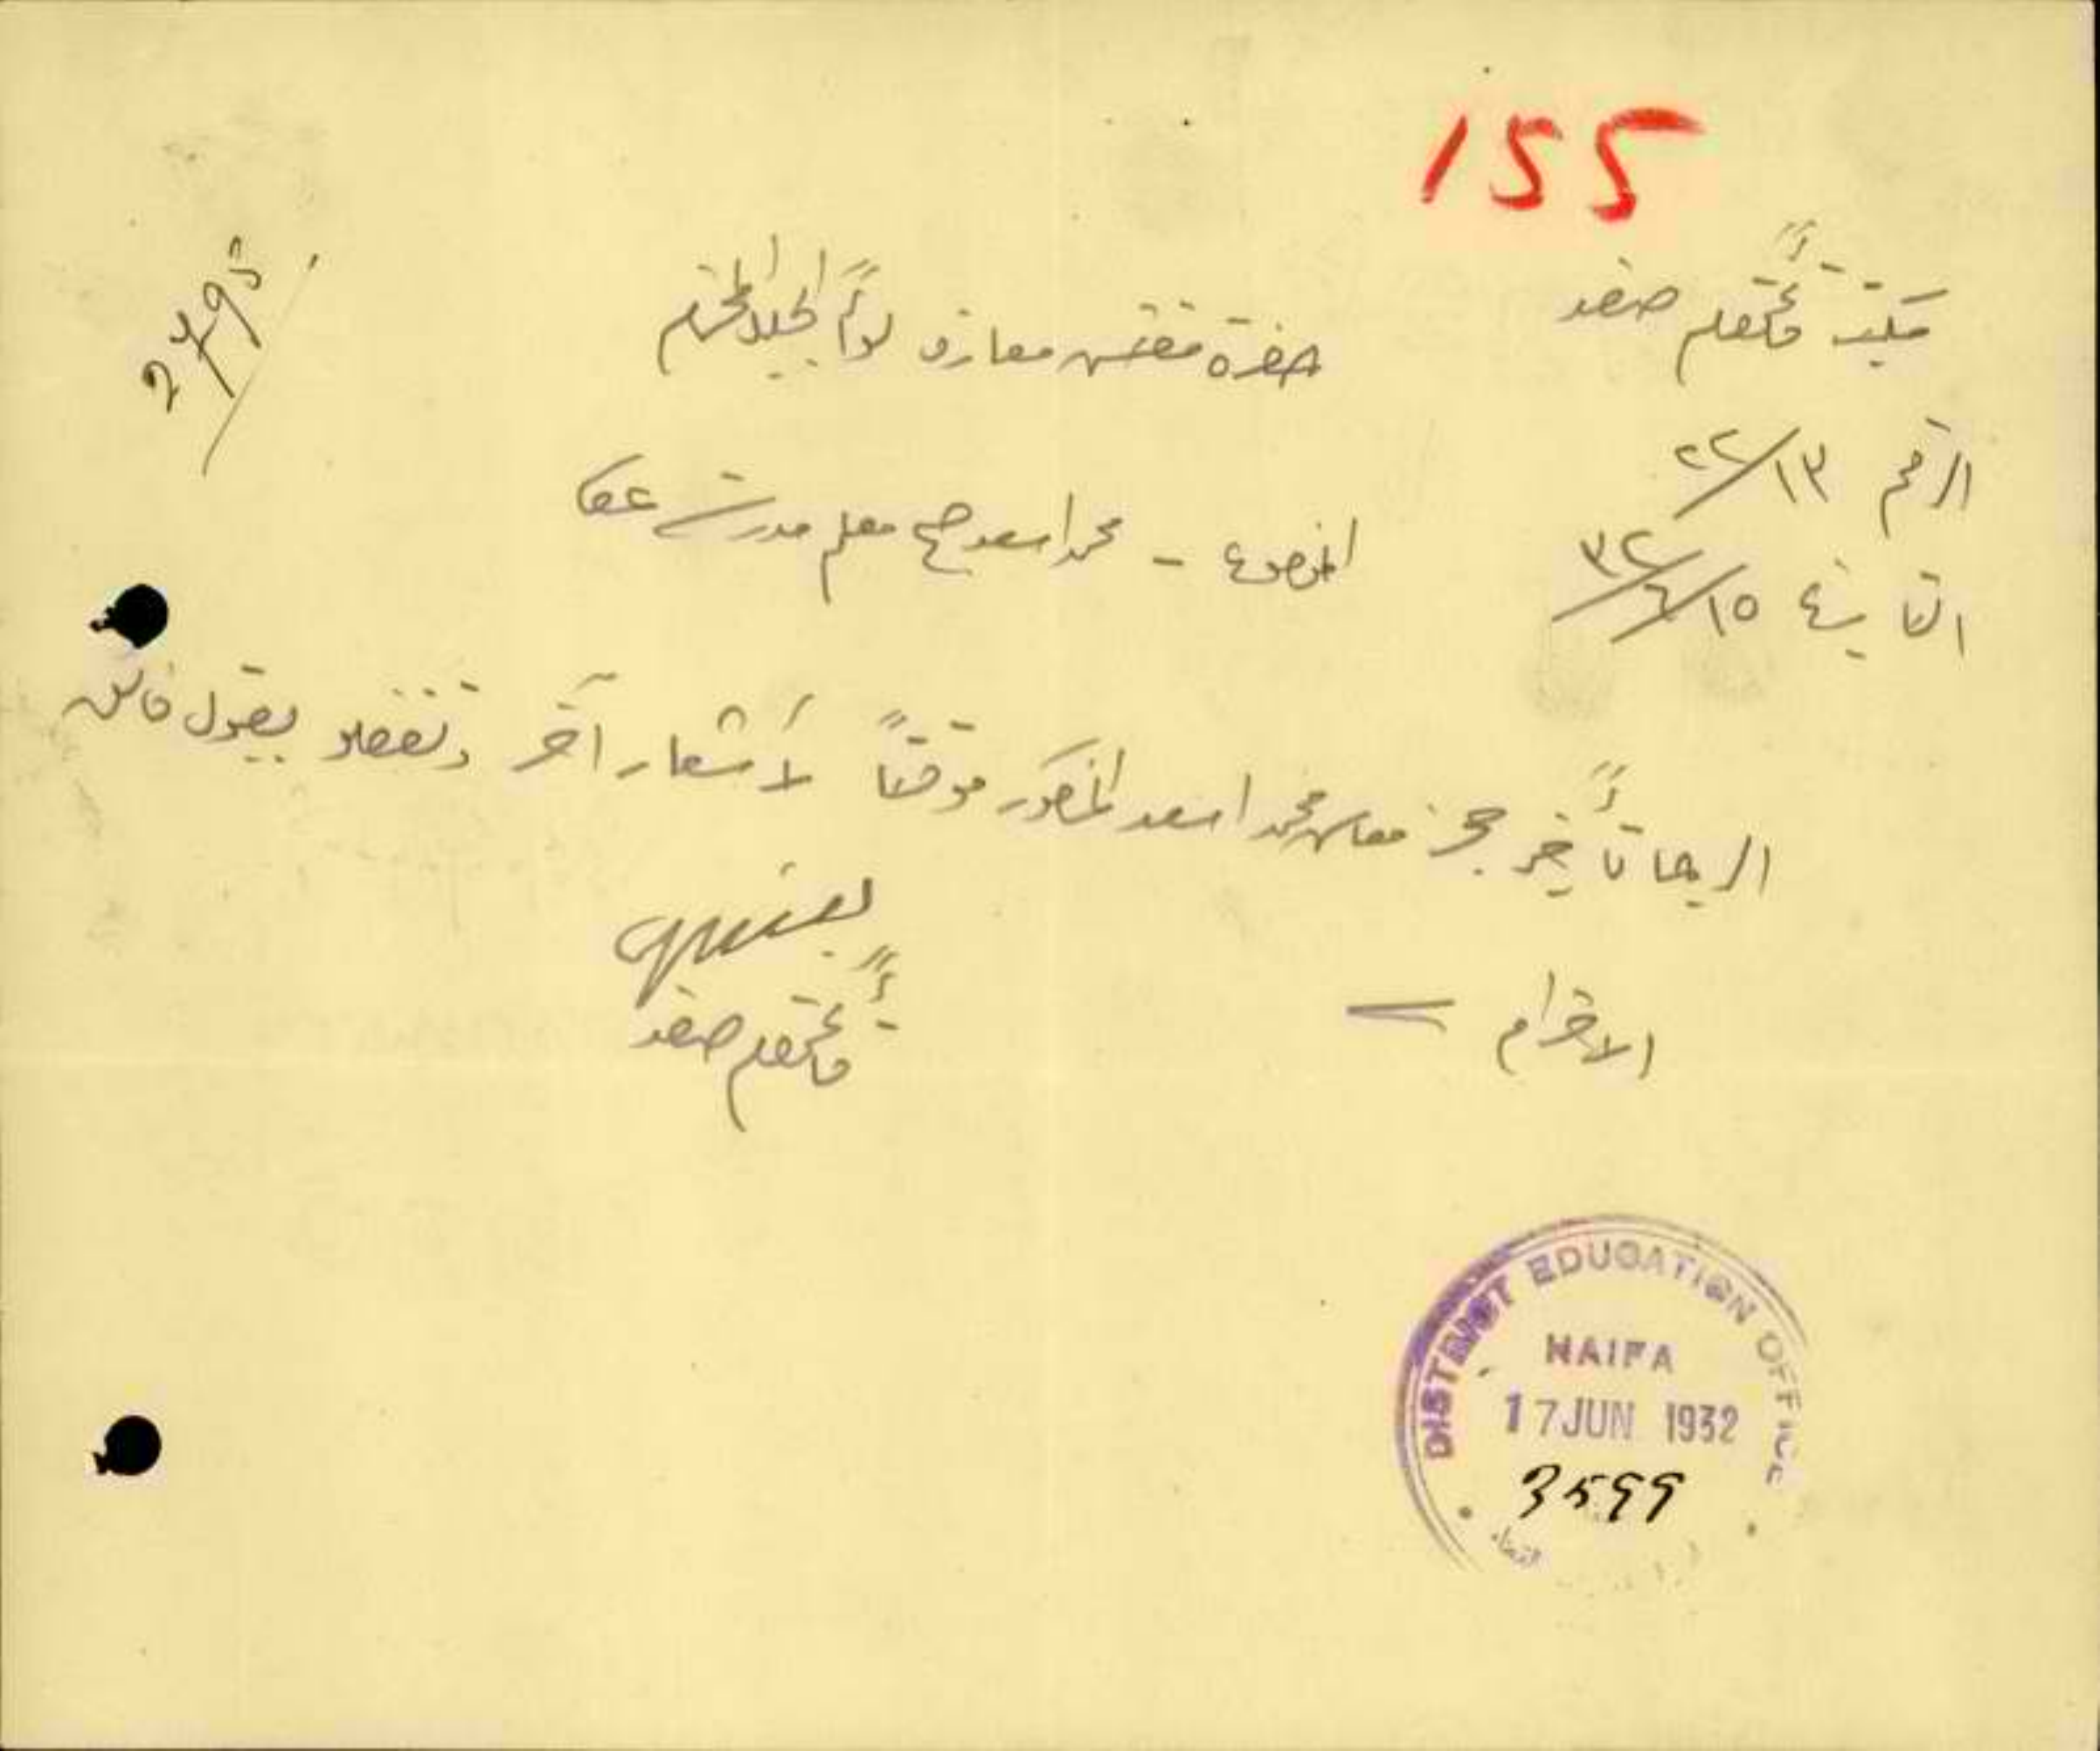 155
مكتب قائمقام صفد
حضرة مفتش معارف لواء الجليل المحترم
2495
الرقم ٢٢/١٣
التاريخ ١٥/٦/٣٢
الموضوع - محمد اسعد معلم مدرسة
الرجا تأخير حجز معاش محمد اسعد المذكور موقتاً لأشعار آخر وتفضلو بقبول فائق
الاحترام
قائمقام صفد
DISTRICT EDUCATION OFFICE
HAIFA
17 JUN 1932
3599